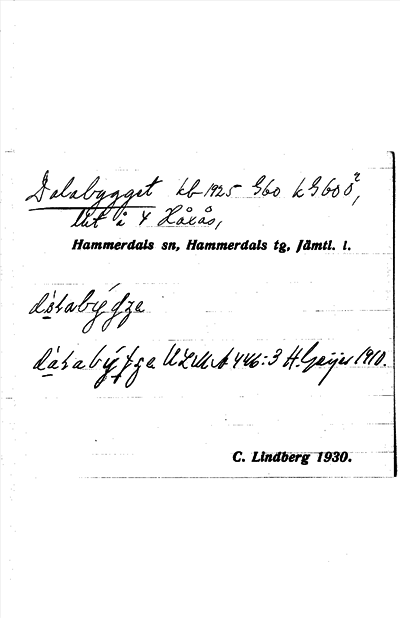 Dalabygget kb 1925 G60 k G60 ö,
lht å 4 Håxås,
Hammerdals sn, Hammerdals tg, Jämtl. l.
dàɫabýgga
dàɫabýgga ULMA 446:3 H. Geijer 1910.
C. Lindberg 1930.